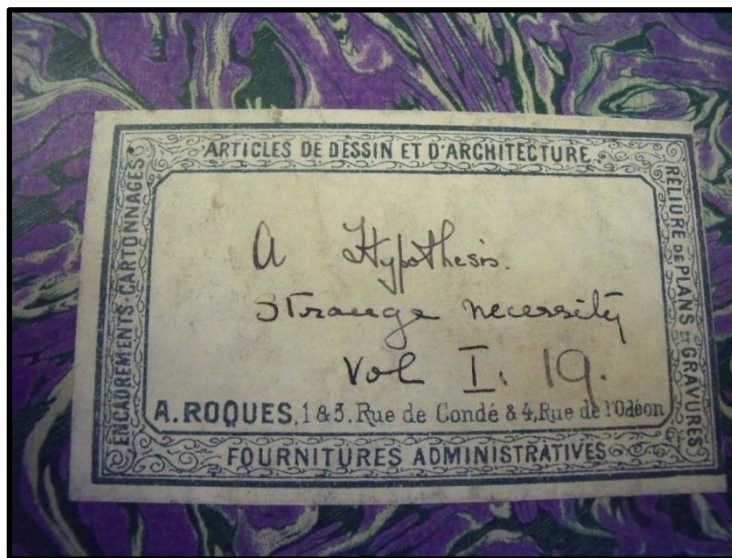 ARTICLES DE DESSIN ET D'ARCHITECTURE.
ENCADREMENTS-CARTONNAGES
RELIURE DE PLANS ET GRAVURES
A Hypothesis.
Strange necessity
Vol I: 19.
A. ROQUES, 1 & 3, Rue de Condé & 4, Rue de l'Odéon
FOURNITURES ADMINISTRATIVES